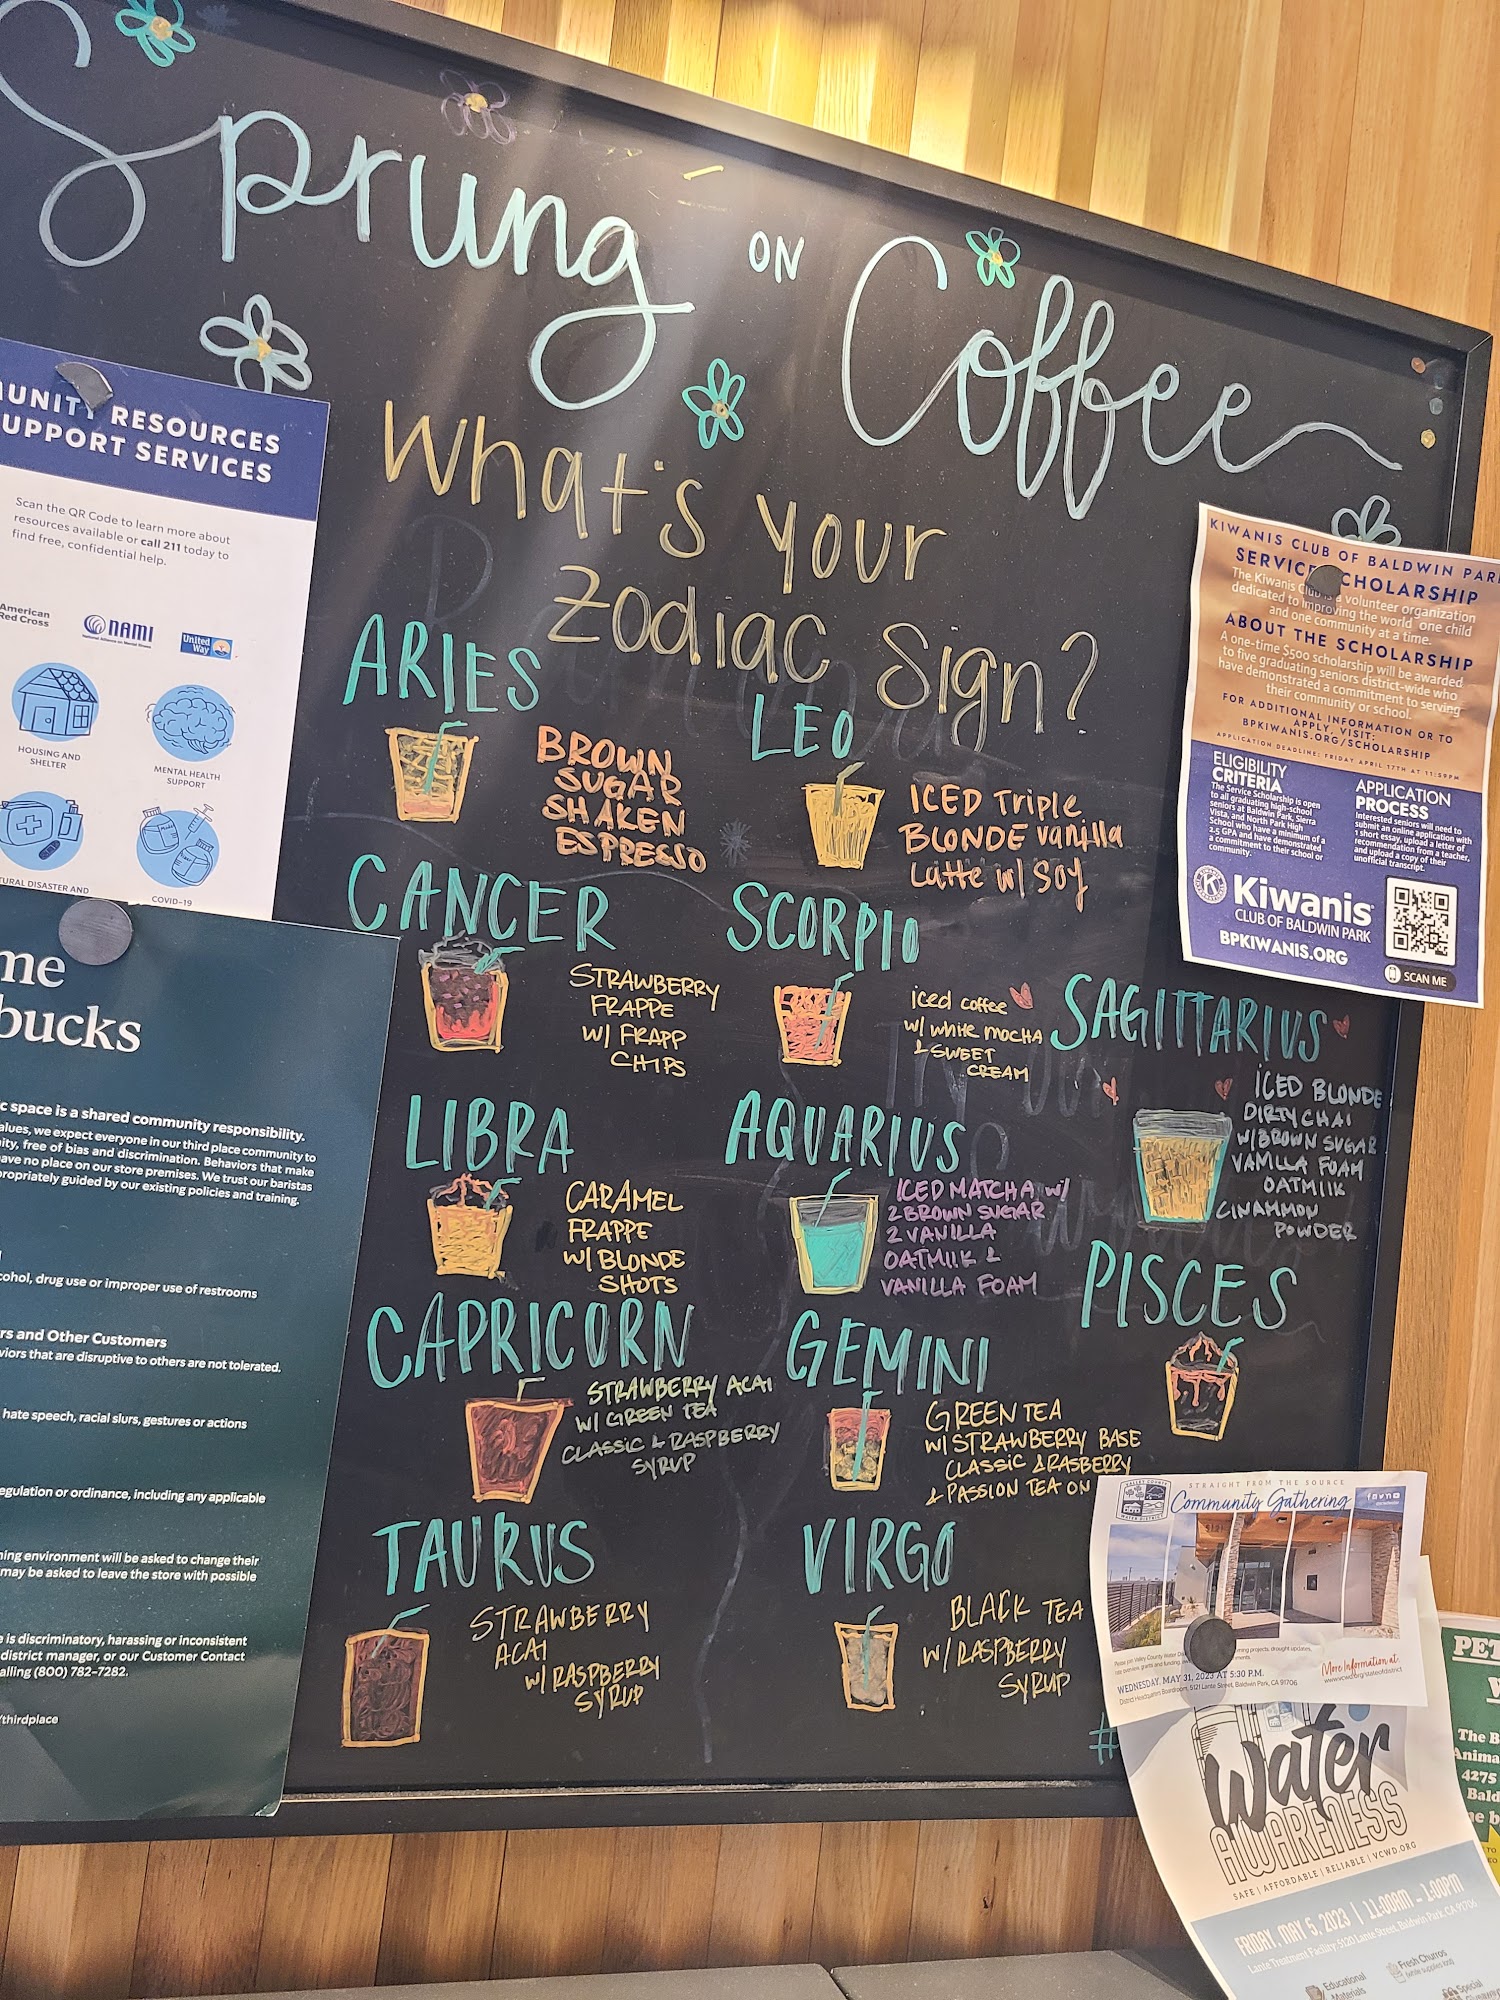 Sprung ON Coffee
What's your
zodiac sign?
ARIES
BROWN
SUGAR
SHAKEN
ESPRESSO
LEO
ICED Triple
BLONDE vanilla
Latte w/ SOY
CANCER
STRAWBERRY
FRAPPE
W/ FRAPP
CHIPS
SCORPIO
iced coffee
w/ white mocha
& SWEET
CREAM
SAGITTARIUS
ICED BLONDE
DIRTY CHAI
W/BROWN SUGAR
VANILLA FOAM
OATMILK
CINAMMON
POWDER
LIBRA
CARAMEL
FRAPPE
W/ BLONDE
SHOTS
AQUARIUS
ICED MATCHA w/
2 BROWN SUGAR
2 VANILLA
OATMILK &
VANILLA FOAM
PISCES
CAPRICORN
STRAWBERRY ACAI
W/ GREEN TEA
CLASSIC & RASPBERRY
SYRUP
GEMINI
GREEN TEA
W/ STRAWBERRY BASE
CLASSIC & RASBERRY
& PASSION TEA ON
TAURUS
STRAWBERRY
ACAI
W/ RASPBERRY
SYRUP
VIRGO
BLACK TEA
W/ RASPBERRY
SYRUP
#
UNITY RESOURCES
UPPORT SERVICES
Scan the QR Code to learn more about
resources available or call 211 today to
find free, confidential help.
American
Red Cross
NAMI
United
Way
HOUSING AND
SHELTER
MENTAL HEALTH
SUPPORT
TURAL DISASTER AND
COVID-19
me
bucks
c space is a shared community responsibility.
alues, we expect everyone in our third place community to
ity, free of bias and discrimination. Behaviors that make
ave no place on our store premises. We trust our baristas
propriately guided by our existing policies and training.
cohol, drug use or improper use of restrooms
rs and Other Customers
viors that are disruptive to others are not tolerated.
hate speech, racial slurs, gestures or actions
egulation or ordinance, including any applicable
ning environment will be asked to change their
may be asked to leave the store with possible
e is discriminatory, harassing or inconsistent
district manager, or our Customer Contact
alling (800) 782-7282.
/thirdplace
KIWANIS CLUB OF BALDWIN PARK
SERVICE SCHOLARSHIP
The Kiwanis Club is a volunteer organization
dedicated to improving the world one child
and one community at a time.
ABOUT THE SCHOLARSHIP
A one-time $500 scholarship will be awarded
to five graduating seniors district-wide who
have demonstrated a commitment to serving
their community or school.
FOR ADDITIONAL INFORMATION OR TO
APPLY, VISIT:
BPKIWANIS.ORG/SCHOLARSHIP
APPLICATION DEADLINE: FRIDAY APRIL 17TH AT 11:59PM
ELIGIBILITY
CRITERIA
The Service Scholarship is open
to all graduating high-school
seniors at Baldwin Park, Sierra
Vista, and North Park High
School who have a minimum of a
2.5 GPA and have demonstrated
a commitment to their school or
community.
APPLICATION
PROCESS
Interested seniors will need to
submit an online application with
1 short essay, upload a letter of
recommendation from a teacher,
and upload a copy of their
unofficial transcript.
Kiwanis
CLUB OF BALDWIN PARK
BPKIWANIS.ORG
SCAN ME
VALLEY COUNTY
WATER DISTRICT
STRAIGHT FROM THE SOURCE
Community Gathering
WEDNESDAY, MAY 31, 2023 AT 5:30 P.M.
District Headquarters Boardroom, 5121 Lante Street, Baldwin Park, CA 91706
More Information at:
www.vcwd.org/stateofdistrict
Water
AWARENESS
SAFE | AFFORDABLE | RELIABLE | VCWD.ORG
FRIDAY, MAY 5, 2023 | 11:00AM - 1:00PM
Lante Treatment Facility 5120 Lante Street, Baldwin Park, CA 91706
Educational
Materials
Fresh Churros
(while supplies last)
Special
PET
The B
Anima
4275
Bald